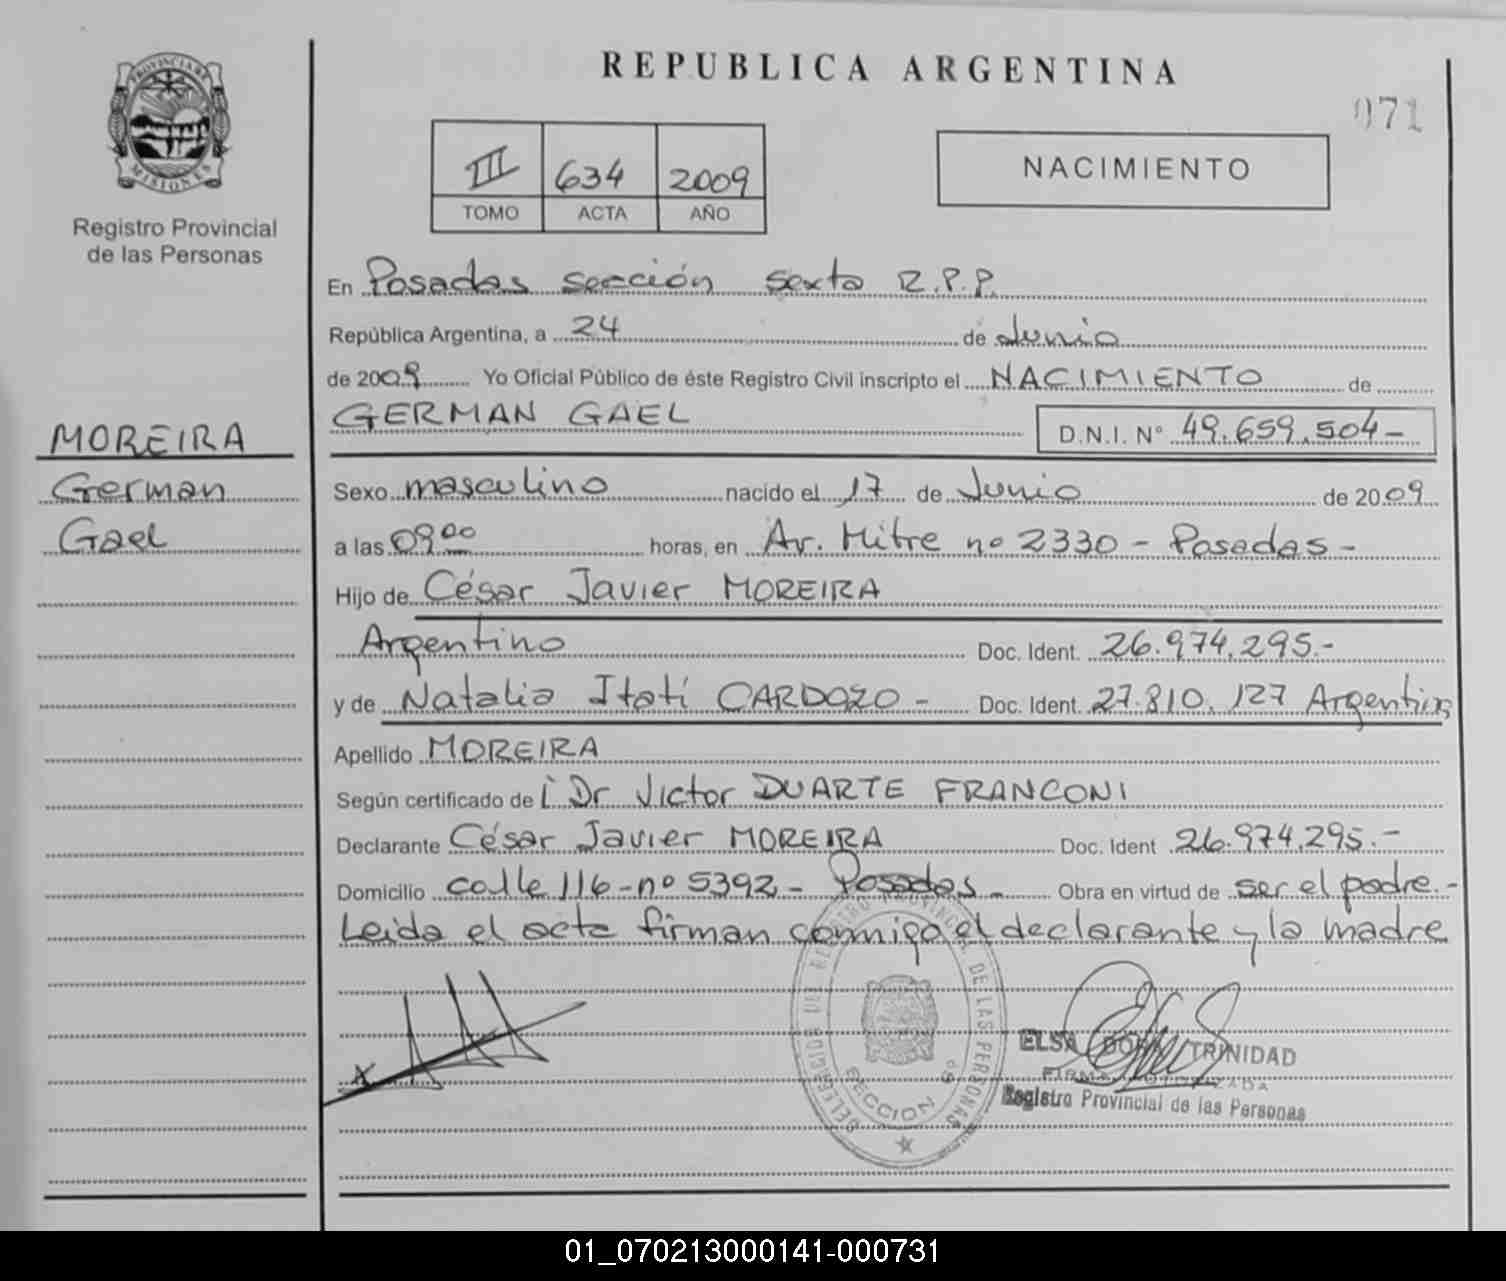 REPUBLICA ARGENTINA
071
PROVINCIA DE MISIONES
Registro Provincial
de las Personas
III 634 2009
TOMO ACTA AÑO
NACIMIENTO
En Posadas sección sexta R.P.P.
República Argentina, a 24 de Junio
de 2009 Yo Oficial Público de éste Registro Civil inscripto el NACIMIENTO de
GERMAN GAEL D.N.I. Nº 49.659.504-
MOREIRA
German
Gael
Sexo masculino nacido el 17 de Junio de 2009
a las 09 00 horas, en Av. Mitre nº 2330 - Posadas -
Hijo de César Javier MOREIRA
Argentino Doc. Ident. 26.974.295.-
y de Natalia Itatí CARDOZO - Doc. Ident. 27.810.127 Argentina
Apellido MOREIRA
Según certificado de Dr Victor DUARTE FRANCONI
Declarante César Javier MOREIRA Doc. Ident 26.974.295.-
Domicilio calle 116 - nº 5392 - Posadas - Obra en virtud de ser el padre.-
Leida el acta firman conmigo el declarante y la madre
DELEGACION DEL REGISTRO PROVINCIAL DE LAS PERSONAS
SECCION 6º
ELSA DORA TRINIDAD
FIRMA AUTORIZADA
Registro Provincial de las Personas
01_070213000141-000731